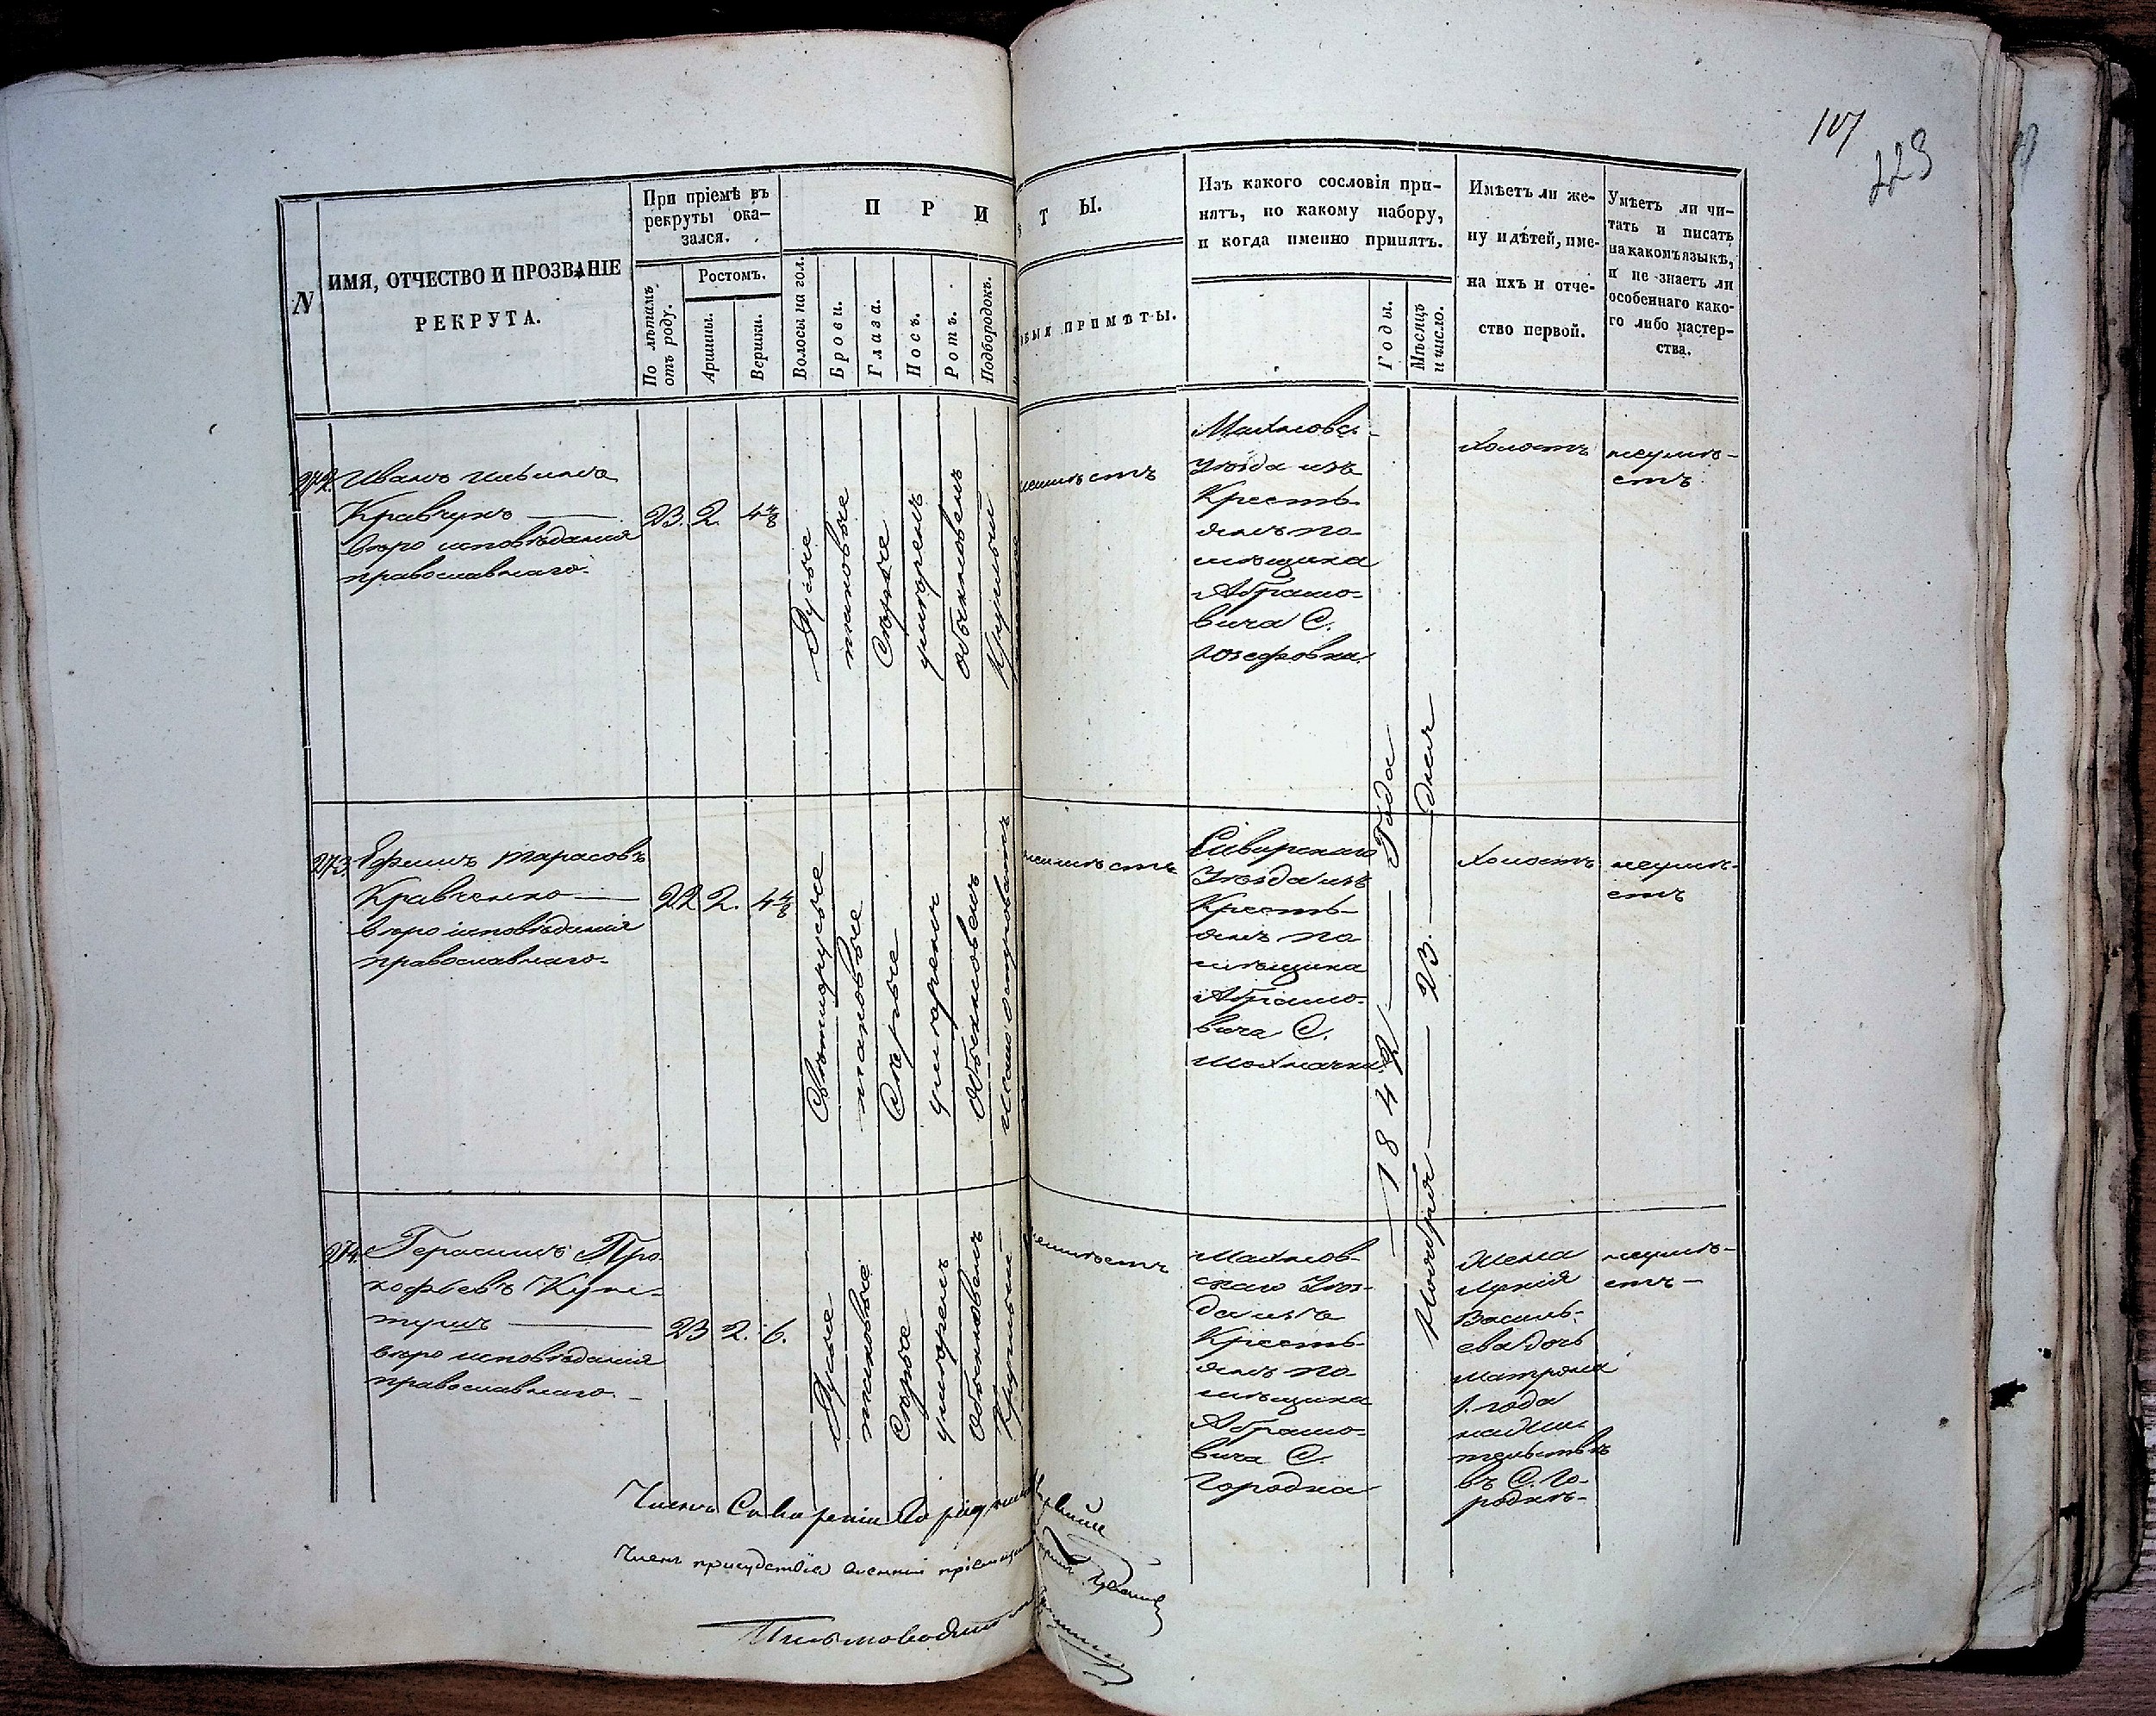 107
223
N
ИМЯ, ОТЧЕСТВО И ПРОЗВАНІЕ
РЕКРУТА.
При пріемѣ въ
рекруты ока-
зался.
По лѣтамъ
отъ роду.
Ростомъ.
Аршины.
Вершки.
П Р И
Волосы на гол.
Брови.
Глаза.
Носъ.
Ротъ.
Подбородокъ.
Т Ы.
ПРИМѢТЫ.
Изъ какого сословія при-
нятъ, по какому набору,
и когда именно принятъ.
Годы.
Мѣсяцъ
и число.
Имѣетъ ли же-
ну и дѣтей, име-
на ихъ и отче-
ство первой.
Умѣетъ ли чи-
тать и писать
на какомъ языкѣ,
и не знаетъ ли
особеннаго како-
го либо мастер-
ства.
272.
Иванъ
Кравчукъ
вѣро исповѣданія
православнаго.
23.
2.
4
Русые
таковые
Сѣрые
умѣренъ
обыкновенъ
Круглый
неимѣетъ
Махновск.
Уѣзда изъ
Кресть-
янъ по-
мѣщика
Абрамо-
вича С.
Юзефовки
холостъ
неумѣ-
етъ
273.
Ефимъ Тарасовъ
Кравченко
вѣро исповѣданія
православнаго.
22
2.
4
Свѣтлорусые
таковые
Сѣрые
умѣренъ
обыкновенъ
неимѣетъ
Сквирскаго
Уѣзда изъ
Кресть-
янъ по-
мѣщика
Абрамо-
вича С.
холостъ
неумѣ-
етъ
1842 Года
Ноября 23. дня
274.
Герасимъ Про-
кофьевъ
вѣро исповѣданія
православнаго.
23
2.
6.
Русые
таковые
Сѣрые
умѣренъ
обыкновенъ
Круглый
неимѣетъ
Махнов-
скаго Уѣз-
да изъ
Кресть-
янъ по-
мѣщика
Абрамо-
вича С.
Городка
Жена
Василь-
ева дочь
Матрона
1. года
въ С. Го-
родкѣ.
неумѣ-
етъ
Членъ присудствія